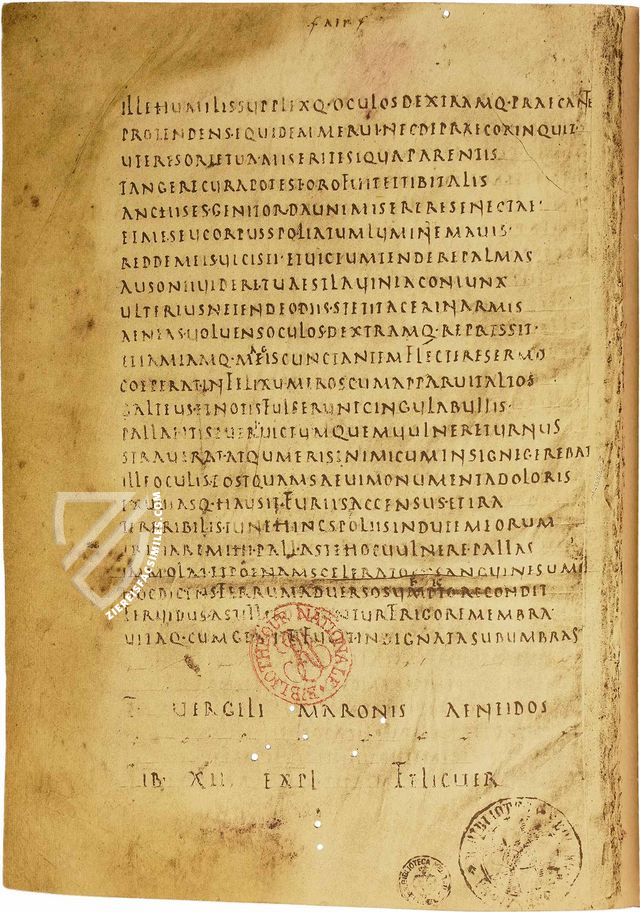 ILLEHUMILISSUPPLEXQ·OCULOSDEXTRAMQ·PRAECANTE
PROTENDENS·EQUIDEMMERUINECDEPRAECORINQUIT
UTERESORTETUAMISERITESIQUAPARENTIS
TANGERECURAPOTESTOROFUITETTIBITALIS
ANCHISES·GENITORDAUNIMISERERESENECTAE·
ETMESEUCORPUSSPOLIATUMLUMINEMAUIS·
REDDEMEISUICISTI·ETUICTUMTENDEREPALMAS
AUSONIIUIDERETUAESTLAUINIACONIUNX
ULTERIUSNETENDEODIIS·STETITACERINARMIS
AENEAS·UOLUENSOCULOS·DEXTRAMQ·REPRESSIT·
ETIAMIAMQ·MAGISCUNCTANTEMFLECTERESERMO
COEPERATINFELIXUMEROSCUMAPPARUITALTOS
BALTEUSETNOTISFULSERUNTCINGULABULLIS·
PALLANTISPUERIUICTUMQUEMUULNERETURNUS
STRAUERATATQUMERISINIMICUMINSIGNEGEREBAT
ILLEOCULISPOSTQUAMSAEUIMONUMENTADOLORIS
EXUUIASQ·HAUSIT·FURIISACCENSUS·ETIRA
TERRIBILIS·TUNEHINCSPOLIISINDUTEMEORUM
ERIPIAREMIHI·PALLASTEHOCUULNEREPALLAS
IMMOLATETPOENAMSCELERATOEXSANGUINESUMIT
HOCDICENSFERRUMADUERSOSUBPECTORECONDIT
FERUIDUS·ASTILLISOLUUNTURFRIGOREMEMBRA
UITAQ·CUMGEMITUFUGITINDIGNATASUBUMBRAS
P UERGILI MARONIS AENEIDOS
LIB XII EXPL FELICITER
ZIEREISFACSIMILES.COM
BIBLIOTHEQUE NATIONALE